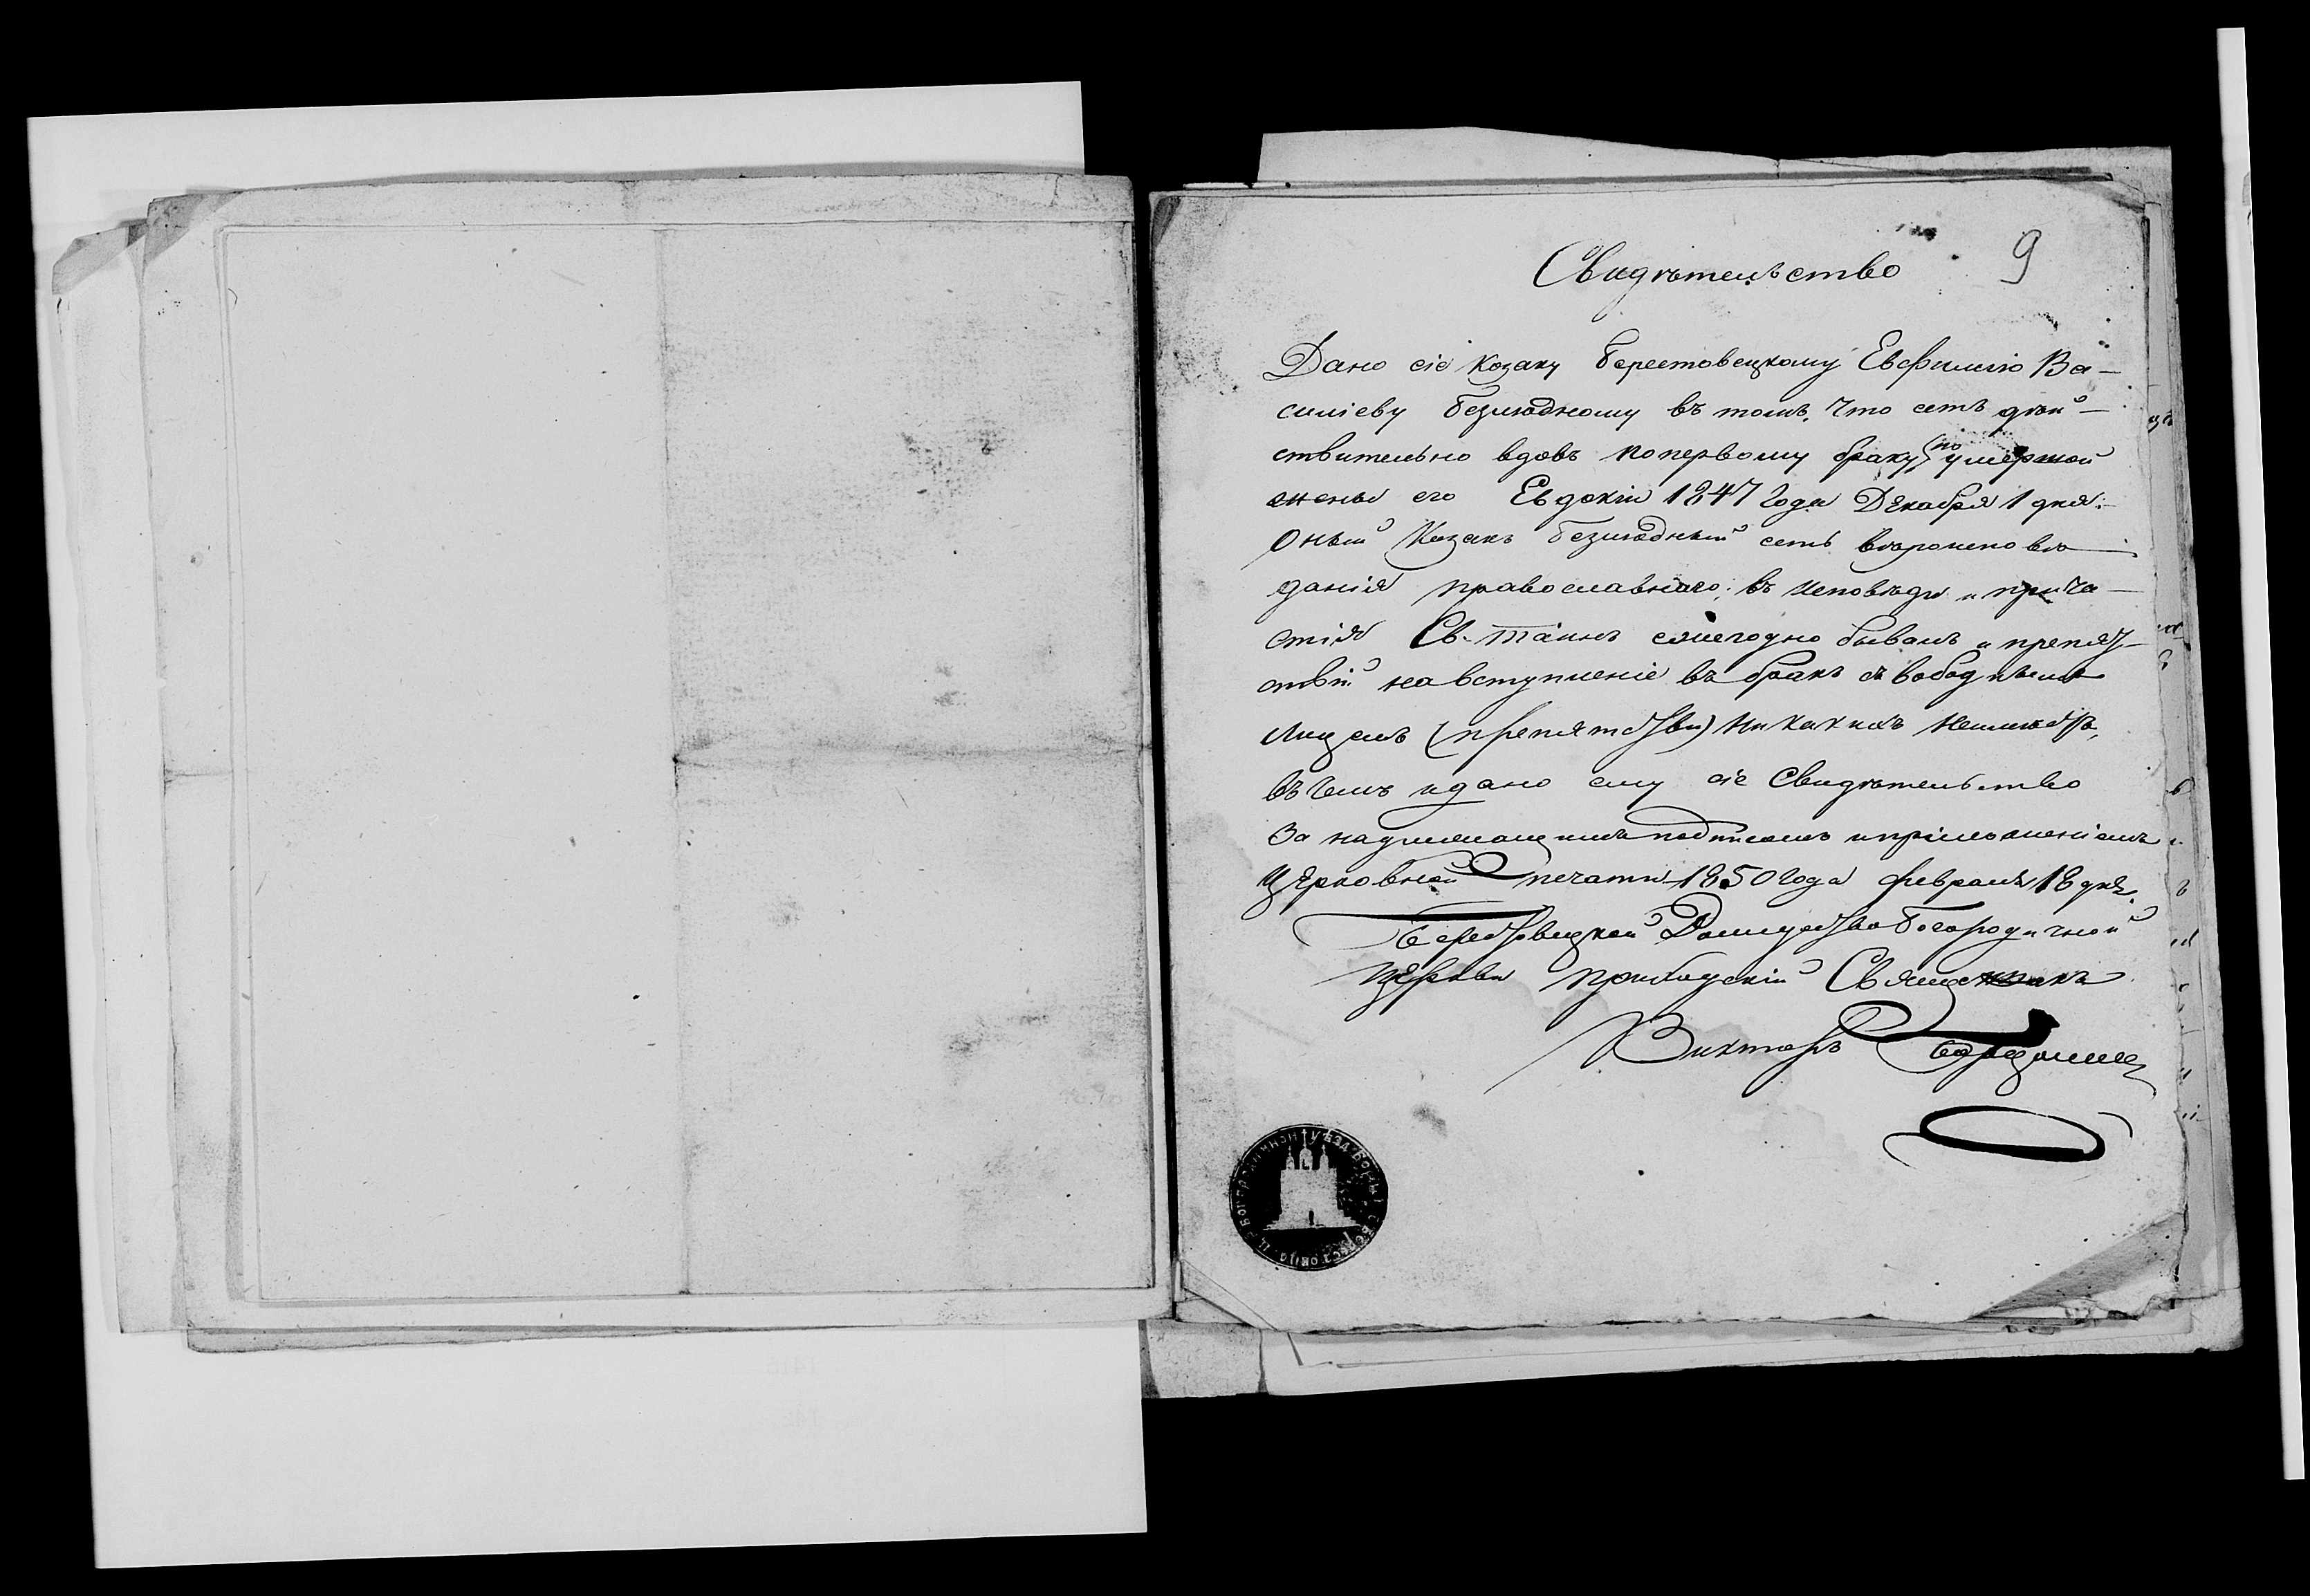 9
Свидѣтельство
Дано сіе козаку Берестовецкому Евфимію Ва-
силіеву Безладному въ томъ, что есть дѣй-
ствительно вдовъ по первому браку, по умершой
жены его Евдокіи 1847 года Декабря 1 дня.
Оный Козакъ Безладный есть вѣроисповѣ-
данія православнаго: въ исповѣди и прича-
стія Св. Таинъ ежегодно бывалъ и препят-
ствій на вступленіе въ бракъ съ вободнымъ
лицемъ (препятстви) никакихъ неимѣетъ,
въ чемъ и дано ему сіе Свидѣтельство
За надлежащимъ подписомъ и приложеніемъ
Церковной печати 1850 года февраля 18 дня.
Берестовецкой Рождество Богородичной
Церкви приходскій Священникъ
Викторъ